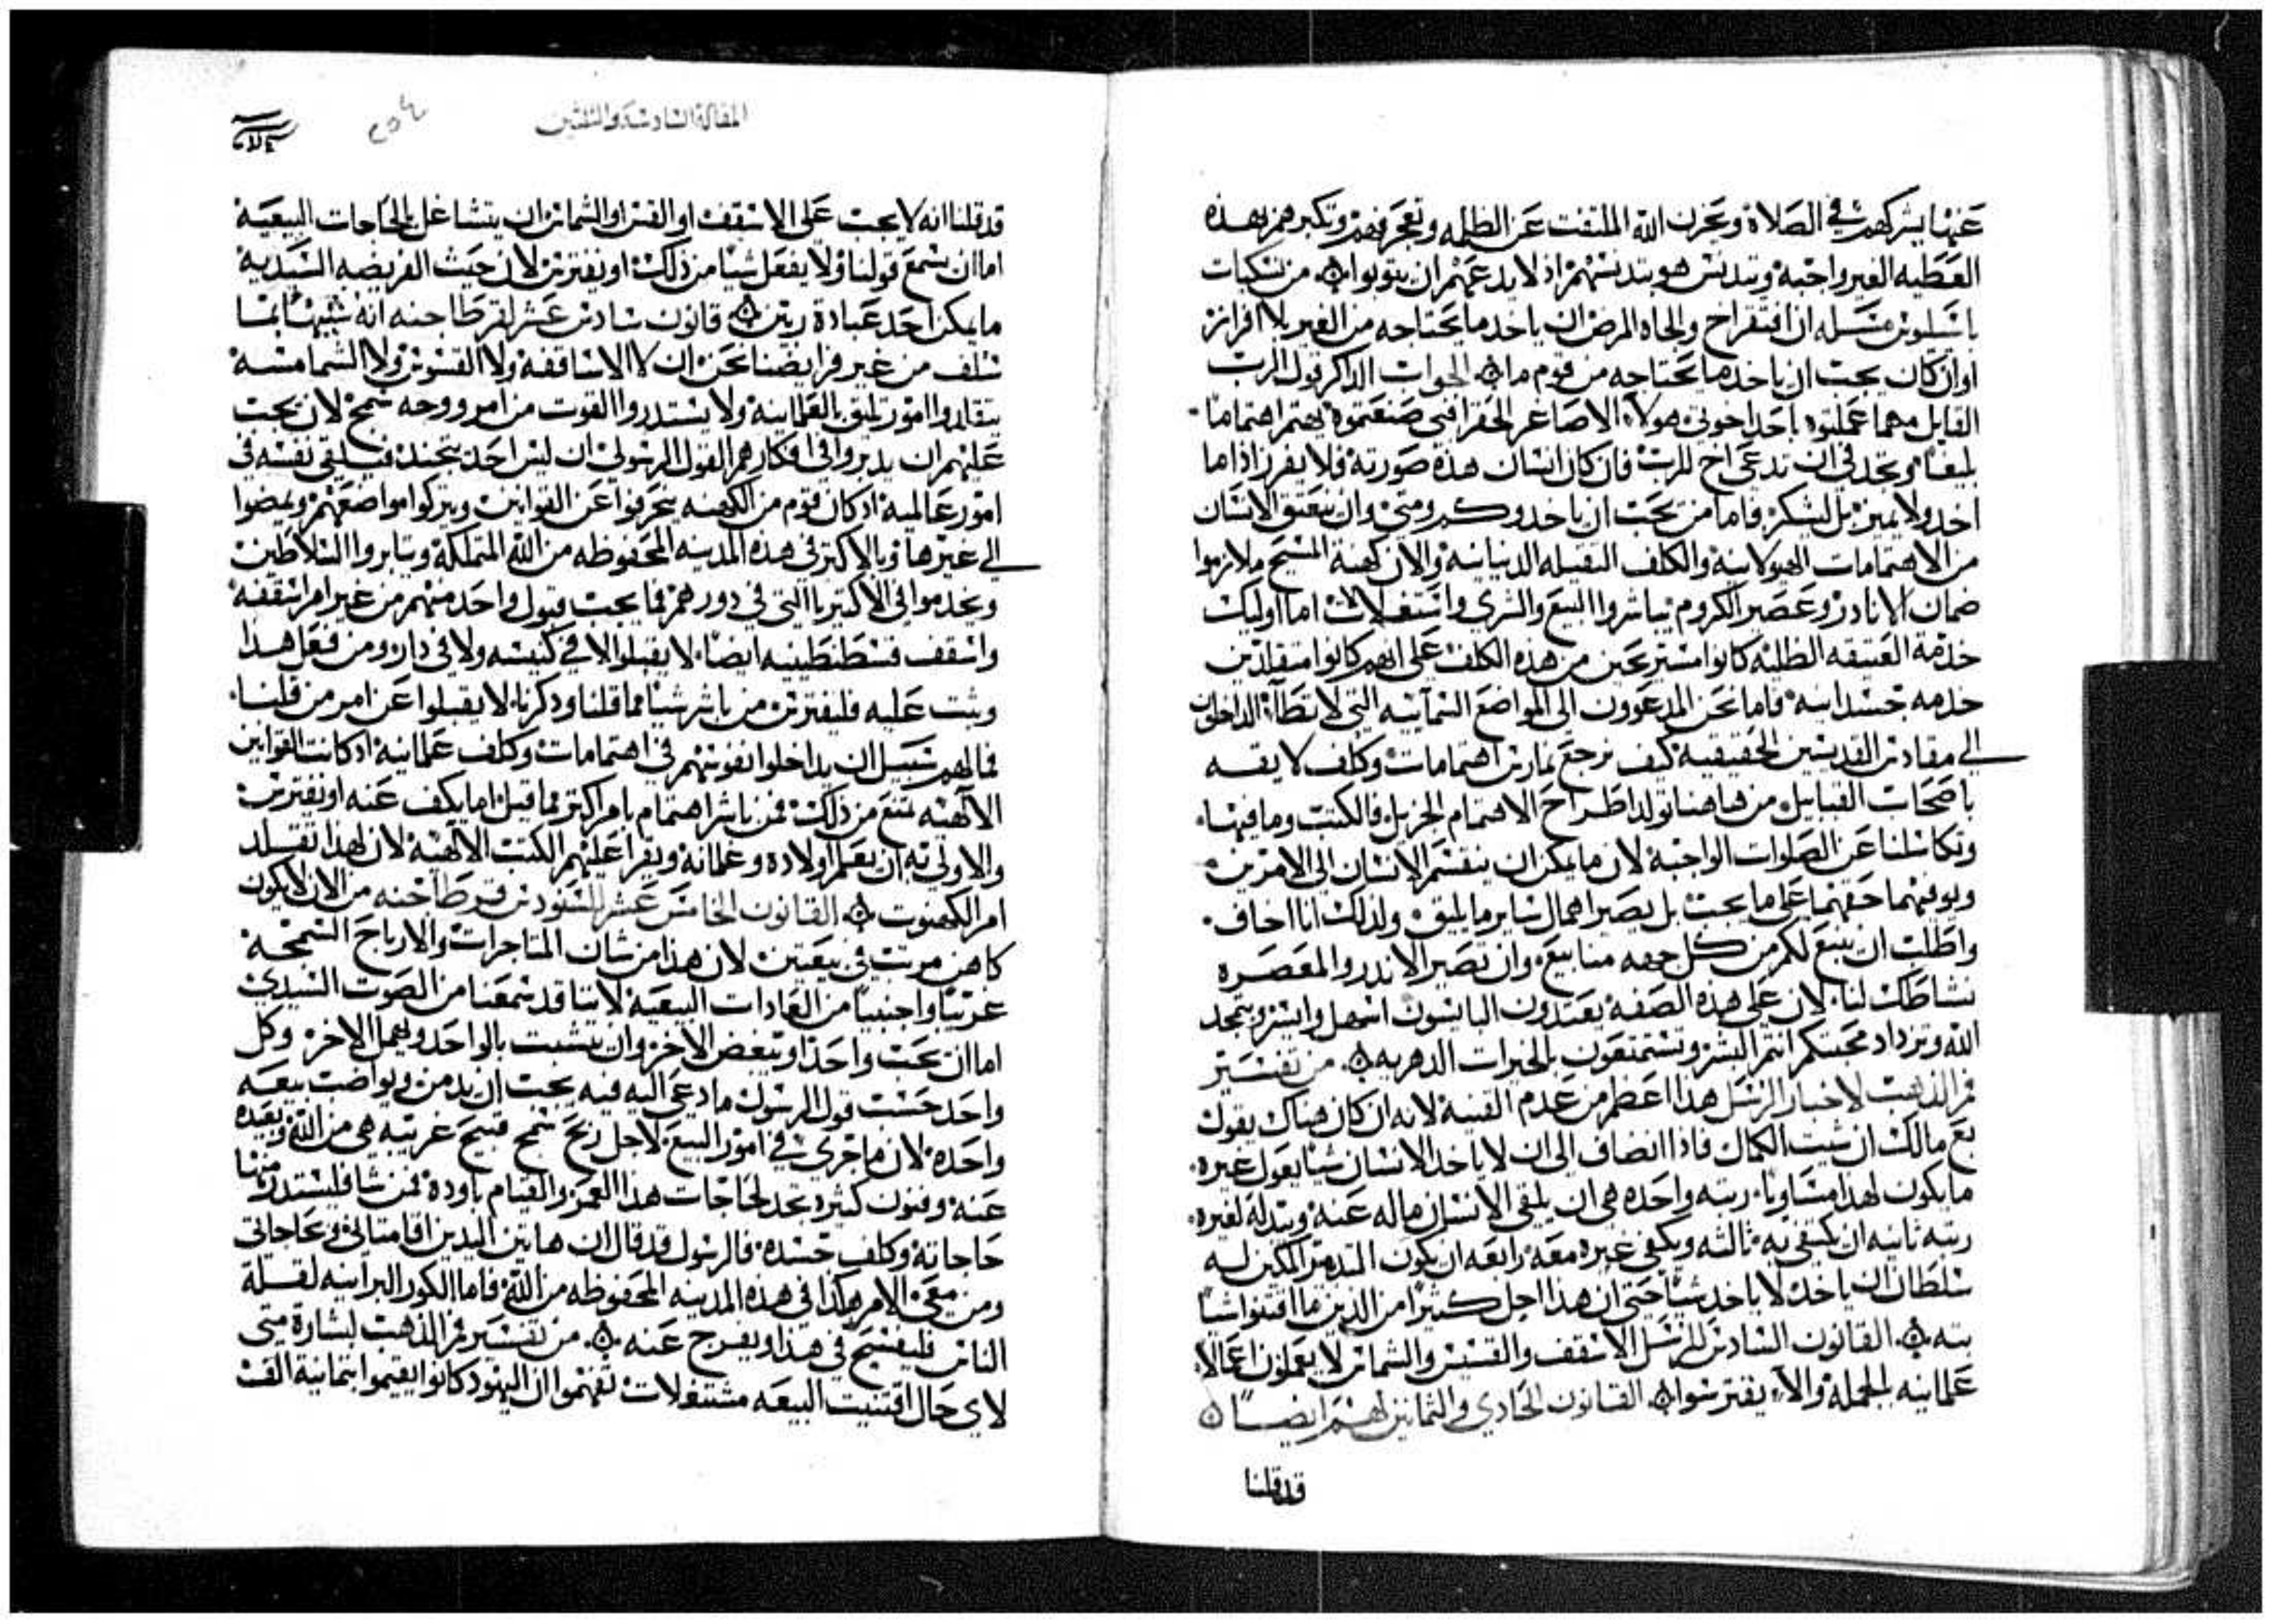 عنها يشركهم في الصلاة ويحزن الله الملتفت عن الظلمه وتعجرفهم وتكبرهم بهذه
العطيه الغير واجبه ويتدنس هو بتدنسهم اذ لا يدعهم ان يتوبوا من نسكيات
باسليوس مسله ان افتقر اخ والجاه المرض ان ياخد ما يحتاجه من الغير بلا افراز
او ان كان يجب ان ياخد ما يحتاجه من قوم ما الجواب الداكر قول الرب
القايل مهما عملتوه باحد اخوتي هولاء الاصاغر الحقرا فبي صنعتموه يهتم اهتماما
بليغا ويجد في ان تدعى اخ للرب فان كان انسان هذه صورته فلا يفرز اذا ما
اخد ولا يميز بل ليشكر فاما من يجب ان ياخد وكم ومتى وان ينعتق الانسان
من الاهتمامات الهيولانيه والكلف الثقيله الدنيانيه والان كهنة المسيح ملازموا
ضمان الانادر وعصير الكروم يباشروا البيع والشري واستغلالات اما اوليك
خدمة العتيقه الظليه كانوا مستريحين من هذه الكلف على انهم كانوا متقلدين
خدمه جسدانيه فاما نحن المدعوون الى المواضع السمائيه التي لا تطأ الداخلون
الى مقادس القديسين الحقيقيه كيف نرجع نمارس اهتمامات وكلف لايقه
باصحاب القبايل من هاهنا تولد اطراح الاهتمام الجزيل فالكتب وما فيها
وتكاسلنا عن الصلوات الواجبه لان ما يمكن ان ينقسم الانسان الى الامرين
ويوفيهما حقهما على ما يجب بل يصير اهمال ساير ما يليق ولذلك انا اخاف
واطلب ان ينبع لكم من كل جهه منابيع وان تصير الاندر والمعصره
نشاطك لنا لان على هذه الصفه يغتدون البايسون اسهل وايسر ويتمجد
الله وتزداد محبتكم انتم البشر وتستمتعون بالخيرات الدهريه من تفسير
فم الذهب لاخبار الرسل هذا اعظم من عدم القنيه لانه ان كان هناك يقول
بع مالك ان شيت الكمال فاذا انضاف الى ان لا ياخد الانسان شيا يعول غيره
ما يكون لهذا مساويا رتبه واحده هي ان يلقي الانسان ماله عنه ويبدله لغيره
رتبه ثانيه ان يكتفي به ثالثه ويكفي غيره معه رابعه ان يكون المتدمر المكين له
سلطان ان ياخد لا ياخد شيا حتى ان هذا اجل كثيرا من الذين ما اقتنوا شيا
بته القانون السادس للرسل الاسقف والقسيس والشماس لا يعملون اعمالا
علمانيه بالجمله والا يفترسوا القانون الحادي والثمانين لهم ايضا
قد قلنا
المقالة السادسة والثلثين
قد قلنا انه لا يجب على الاسقف او القس او الشماس ان يتشاغل بالحاجات البيعيه
اما ان يسمع قولنا ولا يفعل شيا من ذلك او يفترس لان حيث الفريضه السيديه
ما يمكن احد عبادة ربين قانون سادس عشر لقرطاجنه انه شبيها بما
سلف من غير فرايضنا نحن ان لا الاساقفه ولا القسوس ولا الشمامسه
يتقلدوا امور تليق بالعلمانيه ولا يستدروا القوت من امر ووجه سمج لان يجب
عليهم ان يديروا في افكارهم القول الرسولي ان ليس احد يتجند فيلقي نفسه في
امور عالميه اد كان قوم من الكهنه ينحرفوا عن القوانين ويتركوا مواضعهم ويمضوا
الى غيرها وبالاكثر في هذه المدينه المحفوظه من الله المتملكه ويتابروا السلاطين
ويخدموا في الاكتيريا التي في دورهم فما يجب قبول واحد منهم من غير امر اسقفه
واسقف قسطنطينيه ايضا لا يقبلوا لا في كنيسه ولا في دار ومن فعل هدا
ويثبت عليه فليفترس من باشر شيا مما قلنا ودكرنا لا يقبلوا عن امر من قلنا
فما لهم سبيل ان يداخلوا نفوسهم في اهتمامات وكلف علمانيه اد كانت القوانين
الالهيه تمنع من ذلك فمن باشر اهتمام بامر اكثر مما قيل اما يكف عنه او يفترس
والاولى به ان يعلم اولاده وغلمانه ويقرا عليهم الكتب الالهيه لان لهذا تقلد
امر الكهنوت القانون الخامس عشر للسنودس قرطاجنه من الان لا يكون
كاهن مرتب في بيعتين لان هذا من شان المتاجرات والارباح السمجه
غريبا واجنبيا من العادات البيعيه لاننا قد سمعنا من الصوت السيدي
اما ان يحب واحدا ويبغض الاخر وان يتشبث بالواحد ويهمل الاخر وكل
واحد حسب قول الرسول ما دعي اليه فيه يجب ان يدمن ويواضب بيعه
واحده لان ما جرى في امور البيع لاجل ربح سمج قبيح غريبه هي من الله وبعيده
عنه وفنون كثيره تجد لحاجات هذا العمر والقيام باوده فمن شا فليستدر منها
حاجاته وكلف جسده فالرسول قد قال ان هاتين اليدين اقامتا لي وحاجاتي
ومن معي الامر هكذا في هذه المدينه المحفوظه من الله فاما الكور البرانيه لقلة
الناس فليفسح في هذا ويفرج عنه من تفسير فم الذهب لبشارة متى
لاي حال اقتنيت البيعه مشتغلات تفهموا ان اليهود كانوا يقيموا بثمانية الف